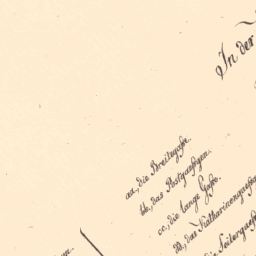 In der
aa, die Breitegasse.
bb, das Postgaeßgen.
cc, die lange Gasse.
dd, das Katharinengaess
die Seitergass